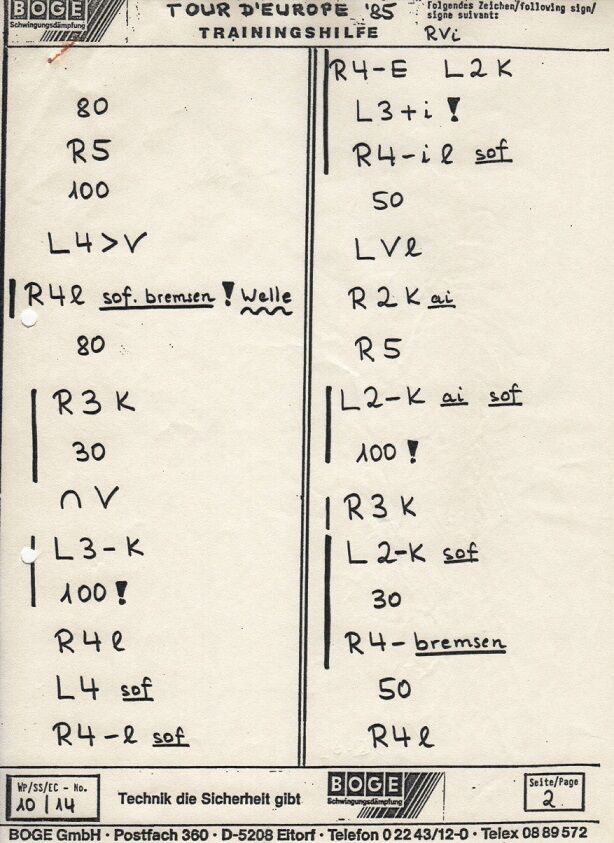 BOGE
Schwingungsdämpfung
TOUR D'EUROPE '85
TRAININGSHILFE
folgendes Zeichen/following sign/
signe suivant:
RVi
80
R5
100
L4>V
R4l sof. bremsen ! Welle
80
R3 K
30
∩ V
L3-K
100!
R4l
L4 sof
R4-l sof
R4-E L2K
L3+i!
R4-il sof
50
LVl
R2K ai
R5
L2-K ai sof
100!
R3K
L2-K sof
30
R4-bremsen
50
R4l
WP/SS/EC - No.
10 | 14
Technik die Sicherheit gibt
BOGE
Schwingungsdämpfung
Seite/Page
2
BOGE GmbH · Postfach 360 · D-5208 Eitorf · Telefon 0 22 43/12-0 · Telex 08 89 572